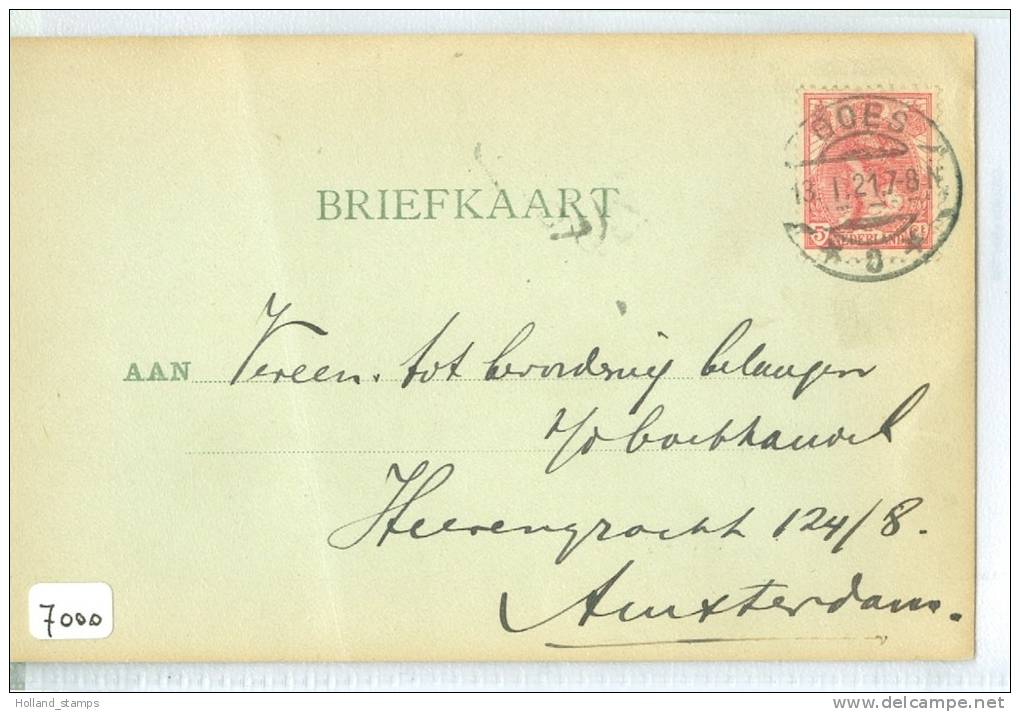 GOES
13.I.21.7-8N
5ct NEDERLAND 5ct
BRIEFKAART
AAN Vereen. tot bevordering belangen
v/d boekhandel
Heerengracht 124/8.
Amsterdam.
7000
Holland_stamps
www.delcampe.net